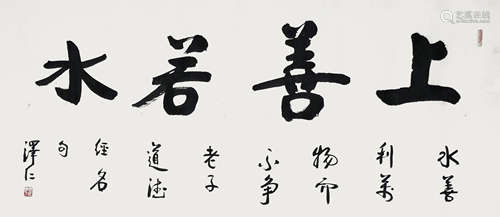 上善若水
水善
利萬
物而
不争
老子
道德
經名
句
澤仁